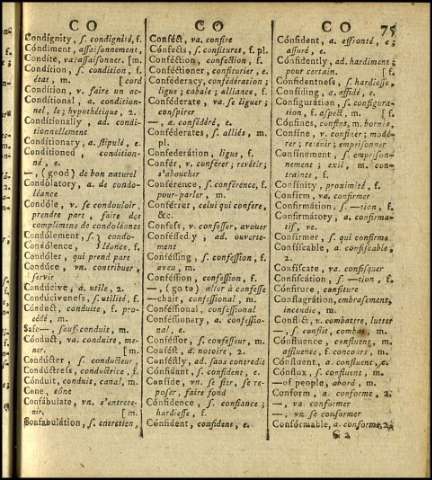 CO CO CO 75
Cóndignity, s. condignité, f.
Cóndiment, assaisonnement,
Condíte, va. assaisonner. [m.
Condítion, s. condition, f.
état, m. [cord
Condítion, v. faire un ac-
Condítional, a. condition-
nel, le; hypothétique, 2.
Condítionally, ad. condi-
tionnellement
Condítionary, a. stipulé, e.
Condítioned, condition-
né, e.
—, (good) de bon naturel
Condólatory, a. de condo-
léance
Condóle, v. se condouloir,
prendre part, faire des
complimens de condoléance
Condólement, s. } condo-
Condólence, } léance, f.
Condóler, qui prend part
Condúce, vn. contribuer,
servir
Condúcive, a. utile, 2.
Condúciveness, s. utilité, f.
Cónduct, conduite, f. pro-
cédé, m.
Safe—, sauf. conduit, m.
Condúct, va. conduire, me-
ner, [m.
Condúctor, s. conducteur,
Condúctress, conductrice, f.
Cónduit, conduit, canal, m.
Cone, cône
Confábulate, vn. s'entrete-
nir, [m.
Confabulátion, s. entretien,
Conféct, va. confire
Cónfects, s. confitures, f. pl.
Conféction, confection, f.
Conféctioner, confiturier, e.
Conféderacy, confédération;
ligue; cabale; alliance, f.
Conféderate, va. se liguer;
conspirer
—, a. confédéré, e.
Conféderates, s. alliés, m.
pl.
Confederátion, ligue, f.
Confér, v. conférer; revêtir;
s'aboucher
Cónference, s. conférence, f.
pour-parler, m.
Conférrer, celui qui confère,
&c.
Conféss, v. confesser, avouer
Conféssedly, ad. ouverte-
ment
Conféssing, s. confession, f.
aveu, m.
Conféssion, confession, f.
—, (go to) aller à confesse
—chair, confessional, m.
Conféssional, confessional
Conféssionary, a. confessio-
nal, e.
Conféssor, s. confesseur, m.
Confést, a. notoire, 2.
Conféstly, ad. sans contredit
Cónfident, s. confident, e.
Confíde, vn. se fier, se re-
poser, faire fond
Cónfidence, s. confiance;
hardiesse, f.
Cónfident, confident, e.
Cónfident, a. effronté, e;
assuré, e.
Cónfidently, ad. hardiment;
pour certain. [f.
Cónfidentness, s. hardiesse,
Confíding, a. affidé, e.
Configurátion, s. configura-
tion, f. aspect, m. [f.
Cónfines, confins, m. bornes,
Confíne, v. confiner; modé-
rer; retenir; emprisonner
Confínement, s. emprison-
nement; exil, m. con-
trainte, f.
Confínity, proximité, f.
Confírm, va. confirmer
Confirmátion, s. —tion, f.
Confírmatory, a. confirma-
tif, ve.
Confírmer, s. qui confirme
Confíscable, a. confiscable,
2.
Confíscate, va. confisquer
Confiscátion, s. —tion, f.
Cónfiture, confiture
Conflagrátion, embrasement,
incendie, m.
Conflíct, v. combattre, lutter
—, s. conflit, combat, m.
Cónfluence, confluent, m.
affluence, f. concours, m.
Cónfluent, a. confluent, e.
Cónflux, s. confluent, m.
—of people, abord, m.
Confórm, a. conforme, 2.
—, va. conformer
—, vn. se conformer
Confórmable, a. conforme, 2.
G 2